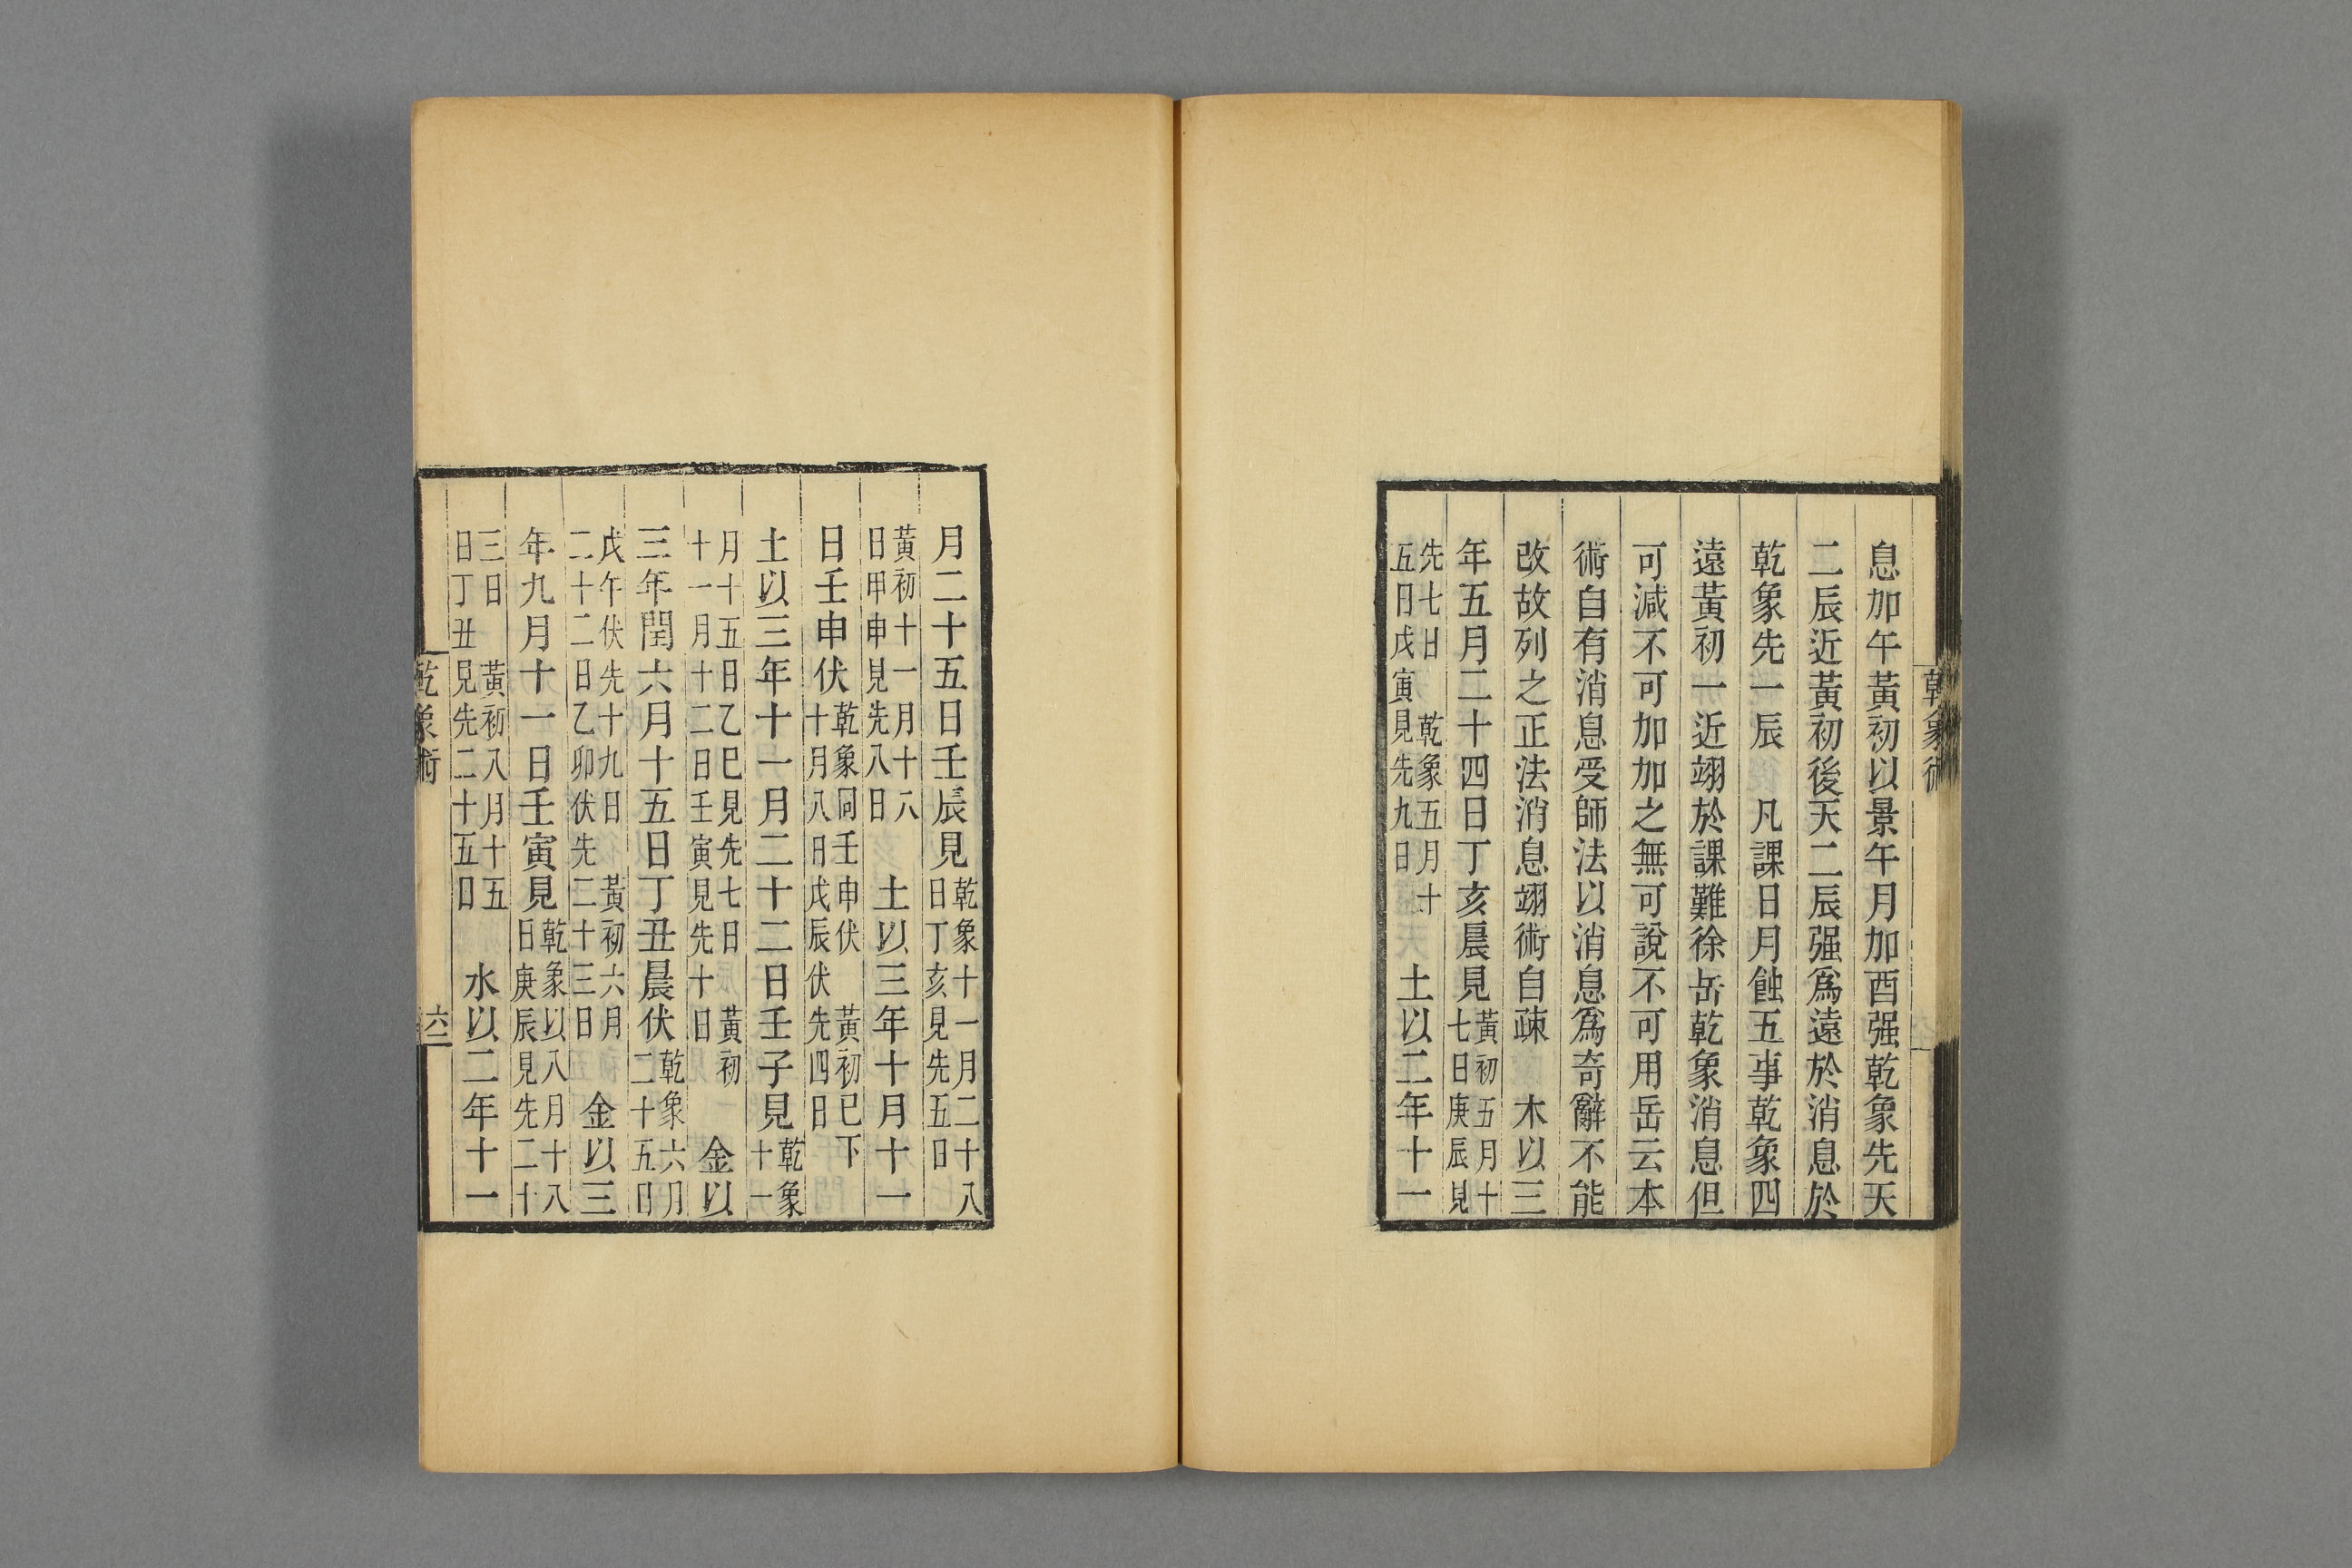 乾象術
息加午黃初以景午月加酉强乾象先天
二辰近黃初後天二辰强爲遠於消息於
乾象先一辰　凡課日月蝕五事乾象四
遠黃初一近翊於課難徐岳乾象消息但
可減不可加加之無可說不可用岳云本
術自有消息受師法以消息爲奇辭不能
改故列之正法消息翊術自疎　木以三
年五月二十四日丁亥晨見黃初五月十七日庚辰見
先七日　乾象五月十五日戊寅見先九日　土以二年十一
月二十五日壬辰見乾象十一月二十八日丁亥見先五日
黃初十一月十八日甲申見先八日　土以三年十月十一
日壬申伏乾象同壬申伏十月八日戊辰伏　黃初已下先四日
土以三年十一月二十二日壬子見乾象十一
月十五日乙巳見先七日　黃初十一月十二日壬寅見先十日　金以
三年閏六月十五日丁丑晨伏乾象六月二十五日
戊午伏先十九日　黃初六月二十二日乙卯伏先二十三日　金以三
年九月十一日壬寅見乾象以八月十八日庚辰見先二十
三日　黃初八月十五日丁丑見先二十五日　水以二年十一
乾象術
六二